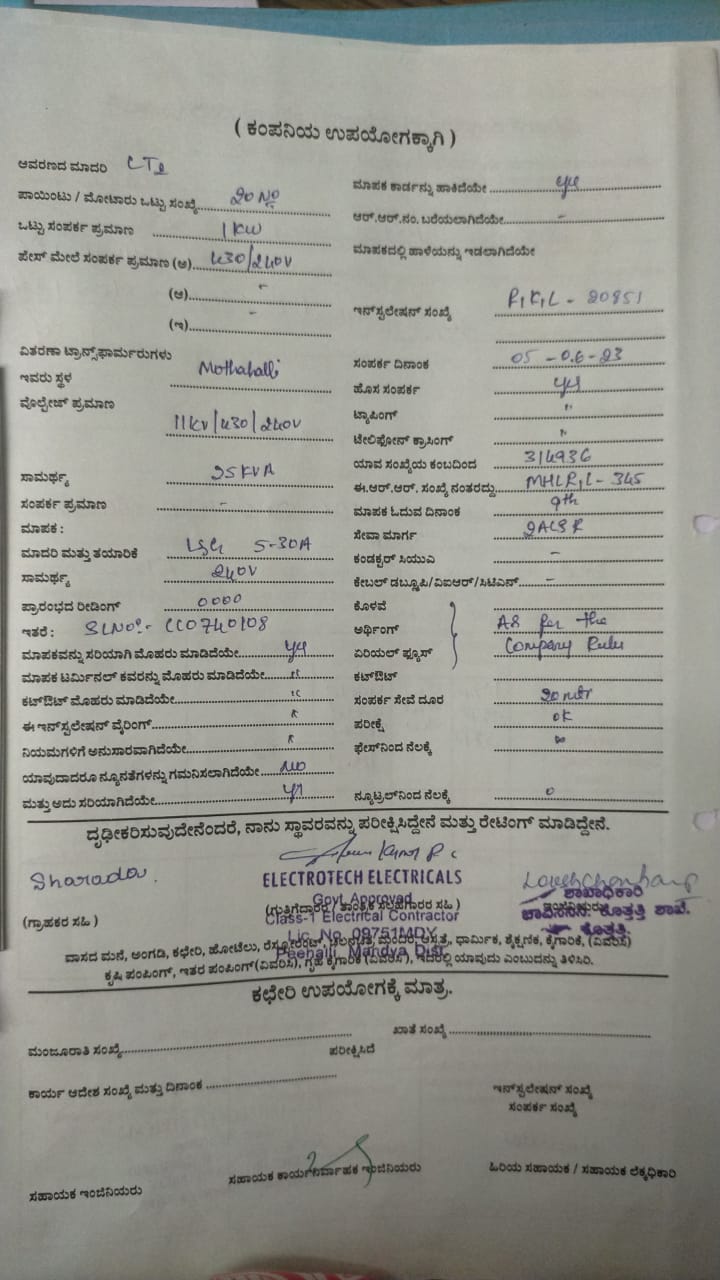 ( ಕಂಪನಿಯ ಉಪಯೋಗಕ್ಕಾಗಿ )
ಆವರಣದ ಮಾದರಿ
ಪಾಯಿಂಟು / ಮೋಟಾರು ಒಟ್ಟು ಸಂಖ್ಯೆ 20 No
ಒಟ್ಟು ಸಂಪರ್ಕ ಪ್ರಮಾಣ 1 KW
ಪೇಸ್ ಮೇಲೆ ಸಂಪರ್ಕ ಪ್ರಮಾಣ (ಅ) 430/240V
(ಆ) -
(ಇ) -
ವಿತರಣಾ ಟ್ರಾನ್ಸ್‌ಫಾರ್ಮರುಗಳು
ಇವರು ಸ್ಥಳ Mothahalli
ವೊಲ್ಟೇಜ್ ಪ್ರಮಾಣ
11KV/430/240V
ಸಾಮರ್ಥ್ಯ 25KVA
ಸಂಪರ್ಕ ಪ್ರಮಾಣ -
ಮಾಪಕ :
ಮಾದರಿ ಮತ್ತು ತಯಾರಿಕೆ 5-30A
ಸಾಮರ್ಥ್ಯ 240V
ಪ್ರಾರಂಭದ ರೀಡಿಂಗ್ 0000
ಇತರೆ : SLNo:- CC0740108
ಮಾಪಕವನ್ನು ಸರಿಯಾಗಿ ಮೊಹರು ಮಾಡಿದೆಯೇ
ಮಾಪಕ ಟರ್ಮಿನಲ್ ಕವರನ್ನು ಮೊಹರು ಮಾಡಿದೆಯೇ
ಕಟ್‌ಔಟ್ ಮೊಹರು ಮಾಡಿದೆಯೇ
ಈ ಇನ್‌ಸ್ಟಲೇಷನ್ ವೈರಿಂಗ್
ನಿಯಮಗಳಿಗೆ ಅನುಸಾರವಾಗಿದೆಯೇ
ಯಾವುದಾದರೂ ನ್ಯೂನತೆಗಳನ್ನು ಗಮನಿಸಲಾಗಿದೆಯೇ No
ಮತ್ತು ಅದು ಸರಿಯಾಗಿದೆಯೇ
ಮಾಪಕ ಕಾರ್ಡನ್ನು ಹಾಕಿದೆಯೇ
ಆರ್.ಆರ್.ನಂ. ಬರೆಯಲಾಗಿದೆಯೇ -
ಮಾಪಕದಲ್ಲಿ ಹಾಳೆಯನ್ನು ಇಡಲಾಗಿದೆಯೇ
ಇನ್‌ಸ್ಟಲೇಷನ್ ಸಂಖ್ಯೆ 20851
ಸಂಪರ್ಕ ದಿನಾಂಕ 05-06-23
ಹೊಸ ಸಂಪರ್ಕ
ಟ್ಯಾಪಿಂಗ್ "
ಟೆಲಿಫೋನ್ ಕ್ರಾಸಿಂಗ್ "
ಯಾವ ಸಂಖ್ಯೆಯ ಕಂಬದಿಂದ 314936
ಈ.ಆರ್.ಆರ್. ಸಂಖ್ಯೆ ನಂತರದ್ದು 345
ಮಾಪಕ ಓದುವ ದಿನಾಂಕ 9th
ಸೇವಾ ಮಾರ್ಗ
ಕಂಡಕ್ಟರ್ ಸಿಯುಎ -
ಕೇಬಲ್ ಡಬ್ಲ್ಯೂಪಿ/ವಿಐಆರ್/ಸಿಟಿಎನ್ -
ಕೊಳವೆ
ಅರ್ಥಿಂಗ್ As per the
ಏರಿಯಲ್ ಫ್ಯೂಸ್ Company Rules
ಕಟ್‌ಔಟ್
ಸಂಪರ್ಕ ಸೇವೆ ದೂರ 20 mtr
ಪರೀಕ್ಷೆ OK
ಫೇಸ್‌ನಿಂದ ನೆಲಕ್ಕೆ ∞
ನ್ಯೂಟ್ರಲ್‌ನಿಂದ ನೆಲಕ್ಕೆ 0
ದೃಢೀಕರಿಸುವುದೇನೆಂದರೆ, ನಾನು ಸ್ಥಾವರವನ್ನು ಪರೀಕ್ಷಿಸಿದ್ದೇನೆ ಮತ್ತು ರೇಟಿಂಗ್ ಮಾಡಿದ್ದೇನೆ.
Sharada.
(ಗ್ರಾಹಕರ ಸಹಿ )
ELECTROTECH ELECTRICALS
Govt Approved
Class-1 Electrical Contractor
Lic. No. 09751MDY
Peehalli, Mandya Dist.
ಶಾಖಾಧಿಕಾರಿ
ಚಾವಿಸನಿನಿ. ಕೊತ್ತತ್ತಿ ಶಾಖೆ.
ಕೊತ್ತತ್ತಿ.
ವಾಸದ ಮನೆ, ಅಂಗಡಿ, ಕಛೇರಿ, ಹೋಟೆಲು, ರೆಸ್ಟೋರೆಂಟ್, ಚಲನಚಿತ್ರ ಮಂದಿರ, ಆಸ್ಪತ್ರೆ, ಧಾರ್ಮಿಕ, ಶೈಕ್ಷಣಿಕ, ಕೈಗಾರಿಕೆ, (ವಿವರಿಸಿ)
ಕೃಷಿ ಪಂಪಿಂಗ್, ಇತರ ಪಂಪಿಂಗ್(ವಿವರಿಸಿ), ಗೃಹ ಕೈಗಾರಿಕೆ (ವಿವರಿಸಿ), ಇದರಲ್ಲಿ ಯಾವುದು ಎಂಬುದನ್ನು ತಿಳಿಸಿರಿ.
ಕಛೇರಿ ಉಪಯೋಗಕ್ಕೆ ಮಾತ್ರ.
ಮಂಜೂರಾತಿ ಸಂಖ್ಯೆ
ಖಾತೆ ಸಂಖ್ಯೆ
ಪರೀಕ್ಷಿಸಿದೆ
ಕಾರ್ಯ ಆದೇಶ ಸಂಖ್ಯೆ ಮತ್ತು ದಿನಾಂಕ
ಇನ್‌ಸ್ಟಲೇಷನ್ ಸಂಖ್ಯೆ
ಸಂಪರ್ಕ ಸಂಖ್ಯೆ
ಸಹಾಯಕ ಇಂಜಿನಿಯರು
ಸಹಾಯಕ ಕಾರ್ಯನಿರ್ವಾಹಕ ಇಂಜಿನಿಯರು
ಹಿರಿಯ ಸಹಾಯಕ / ಸಹಾಯಕ ಲೆಕ್ಕಧಿಕಾರಿ